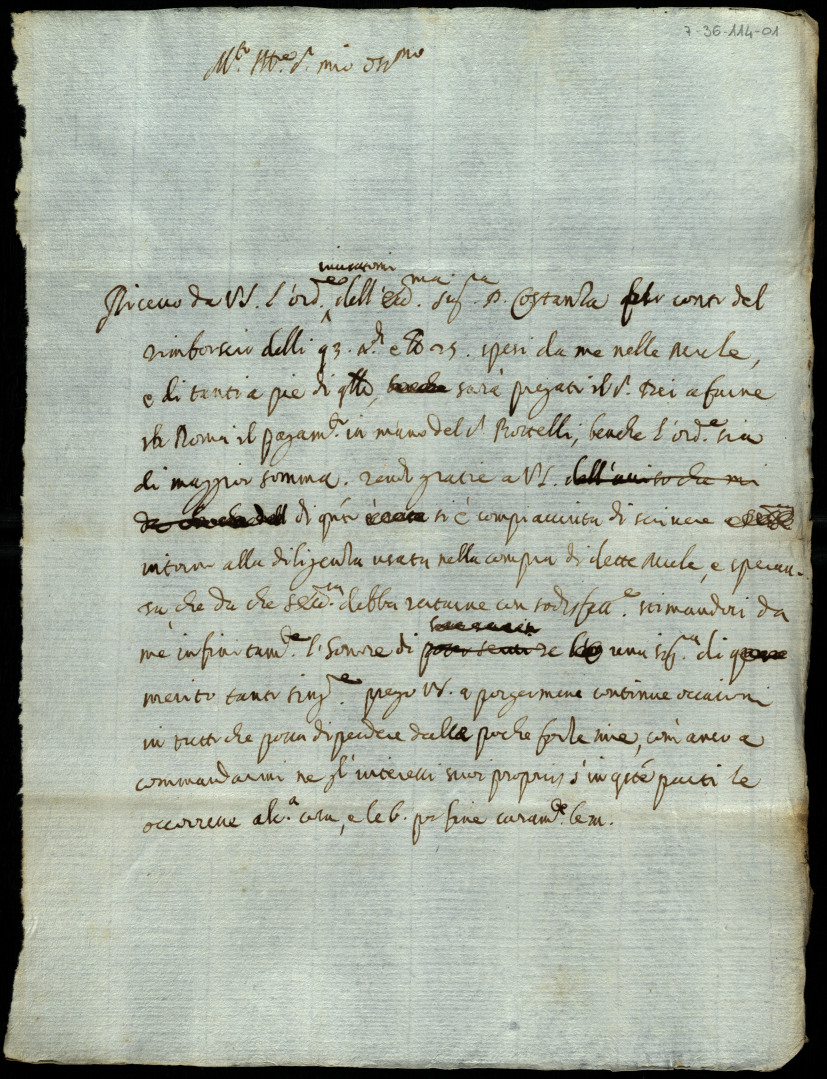 7-36-114-01
M.to Ill.re S.r mio oss.mo
inviatomi
Ricevo da VS. l'ord.e dell'Ecc.ma Sig.ra D. Costanza per conto del
rimborso delli 93. e 25. spesi da me nelle Mule,
e di tanti a piè di q.to, sarà pregato il S.r Trei a farne
in Roma il pagam.to in mano del S.r Rottelli, benche l'ord.e sia
di maggior somma. rendo gratie a VS. dell'aviso che mi
di q.to si è compiaciuta di scrivere
intorno alla diligenza usata nella compra di dette Mule, e
che da che S. Ecc.za debba restarne con sodisfatt.e stimandosi da
me infinitam.te l'honore di una sig.ra di
merito tanto sing.re prego VS. a porgermene continue occasioni
in tutto che possa dipendere dalle poche forze mie, com'anco a
commandarmi ne gl'interessi suoi proprij s'in q.te parti le
occorresse alc.a cosa, e le b. per fine caram.te le m.